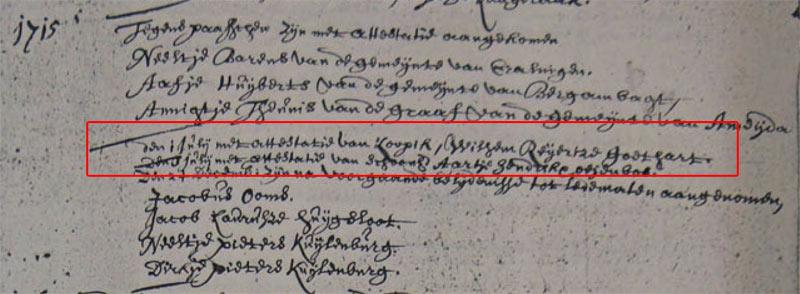 1715
Tegens paasschen zijn met attestatie aangekomen
Neeltje Barens van de gemeijnte van Eralingen.
Aafje Huijberts van de gemeijnte van Bergambagt,
Annigtje Theunis van de Graaf van de gemeijnte van Ameijda
Den 1 Julij met attestatie van Loopik, Willem Reijertze Goethart.
Den julij met attestatie van Aartje Hendrikse
Den zijn na voorgaande belijdenisse tot ledematen aangenomen,
Jacobus Ooms.
Jacob Huijgsloot.
Neeltje pieters Kuijlenburg.
Dirkje pieters Kuijlenburg.